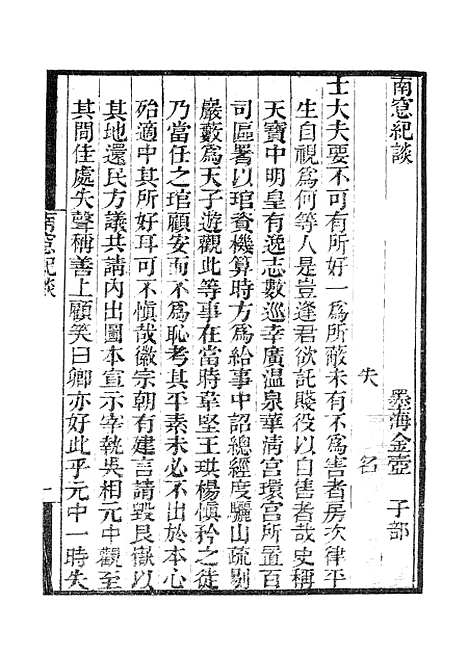 南窓紀談　墨海金壺　子部
失　名
士大夫要不可有所好一爲所蔽未有不爲害者房次律平
生自視爲何等人是豈逢君欲託賤役以自售者哉史稱
天寶中明皇有逸志數巡幸廣温泉華清宮環宮所置百
司區署以琯資機算時方爲給事中詔總經度驪山疏剔
巖藪爲天子遊觀此等事在當時韋堅王珙楊愼矜之徒
乃當任之琯顧安而不爲恥考其平素未必不出於本心
殆適中其所好耳可不愼哉徽宗朝有建言請毀艮嶽以
其地還民方議共請內出圖本宣示宰執吳相元中觀至
其間佳處失聲稱善上顧笑曰卿亦好此乎元中一時失
南窓紀談
一